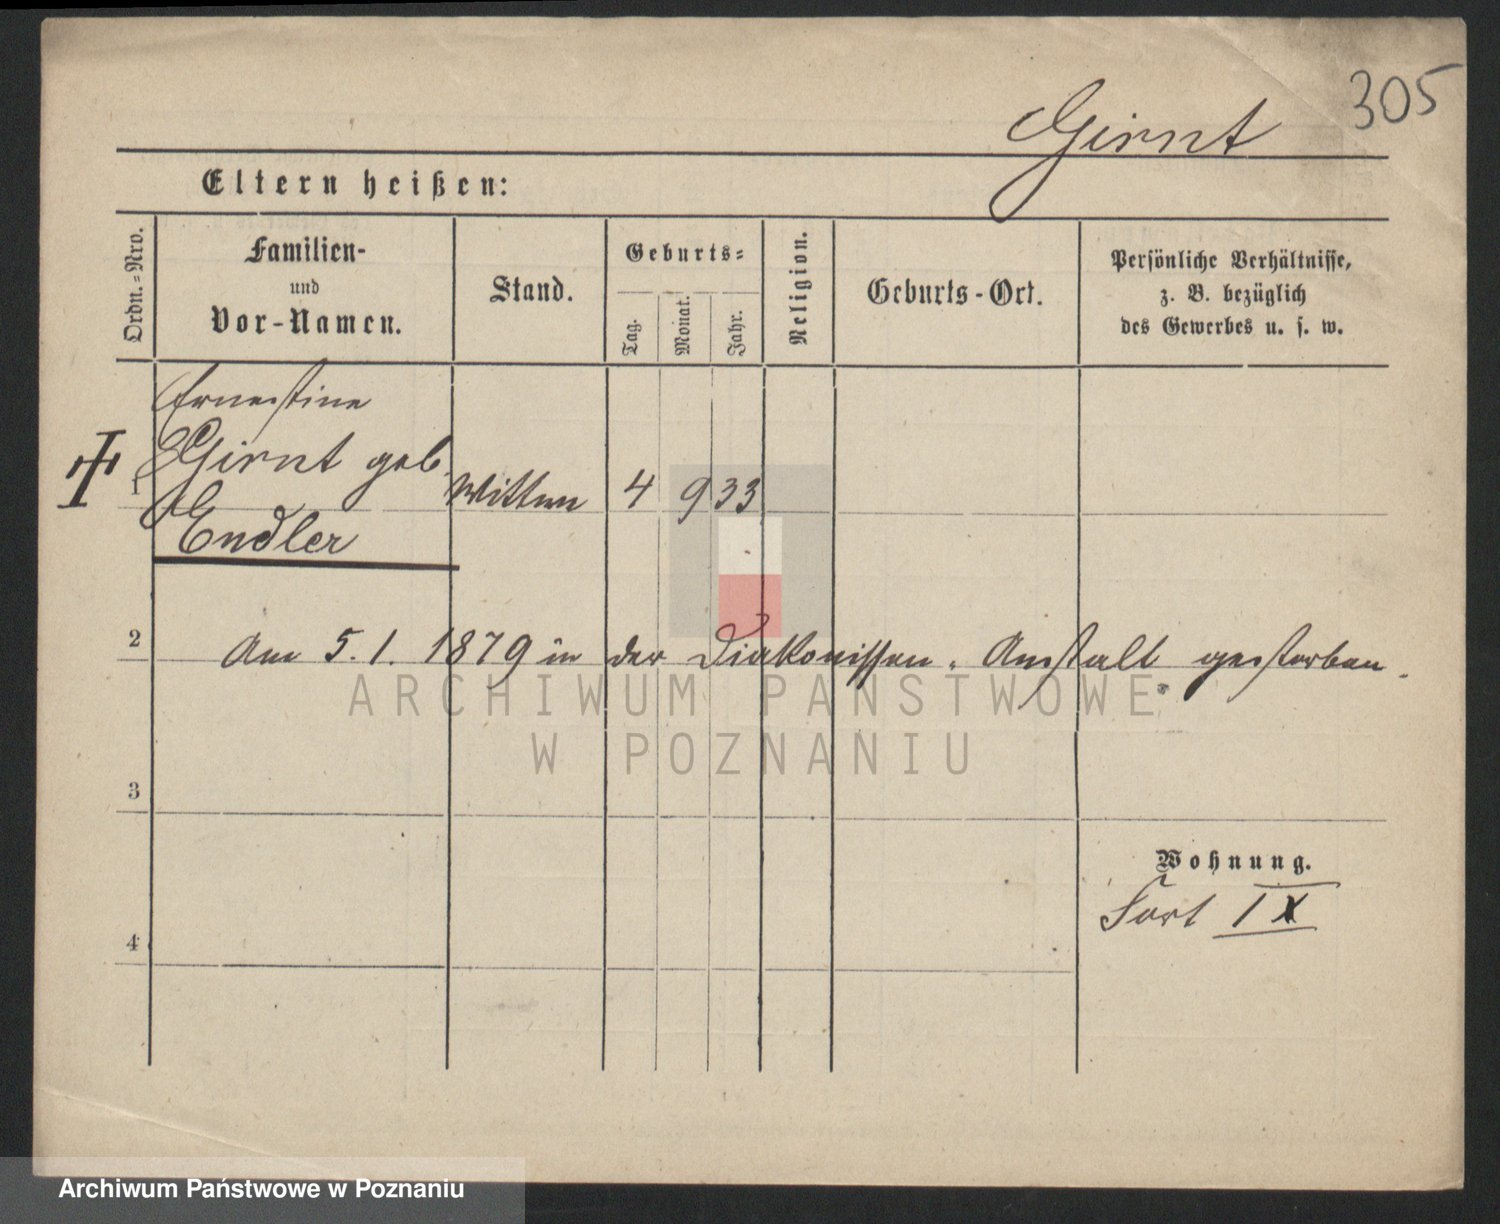 305
Girnt
Eltern heißen:
Ordn.=Nro.
Familien-
und
Vor-Namen.
Stand.
Geburts=
Tag.
Monat.
Jahr.
Religion.
Geburts-Ort.
Persönliche Verhältnisse,
z. B. bezüglich
des Gewerbes u. s. w.
Ernestine
Girnt geb.
Endler
1
Wittwe
4 9 33
2
Am 5. 1. 1879 in der Diakonissen-Anstalt gestorben.
ARCHIWUM PAŃSTWOWE
W POZNANIU
3
Wohnung.
Fort IX
4
Archiwum Państwowe w Poznaniu